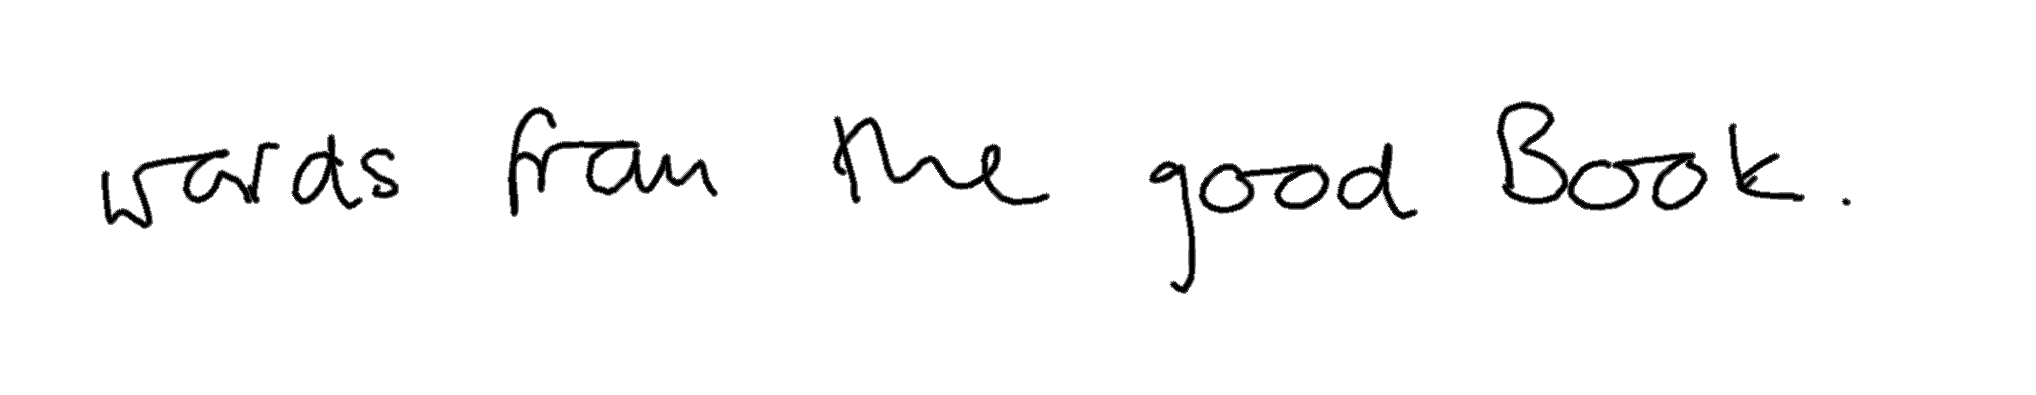 words from the good Book.